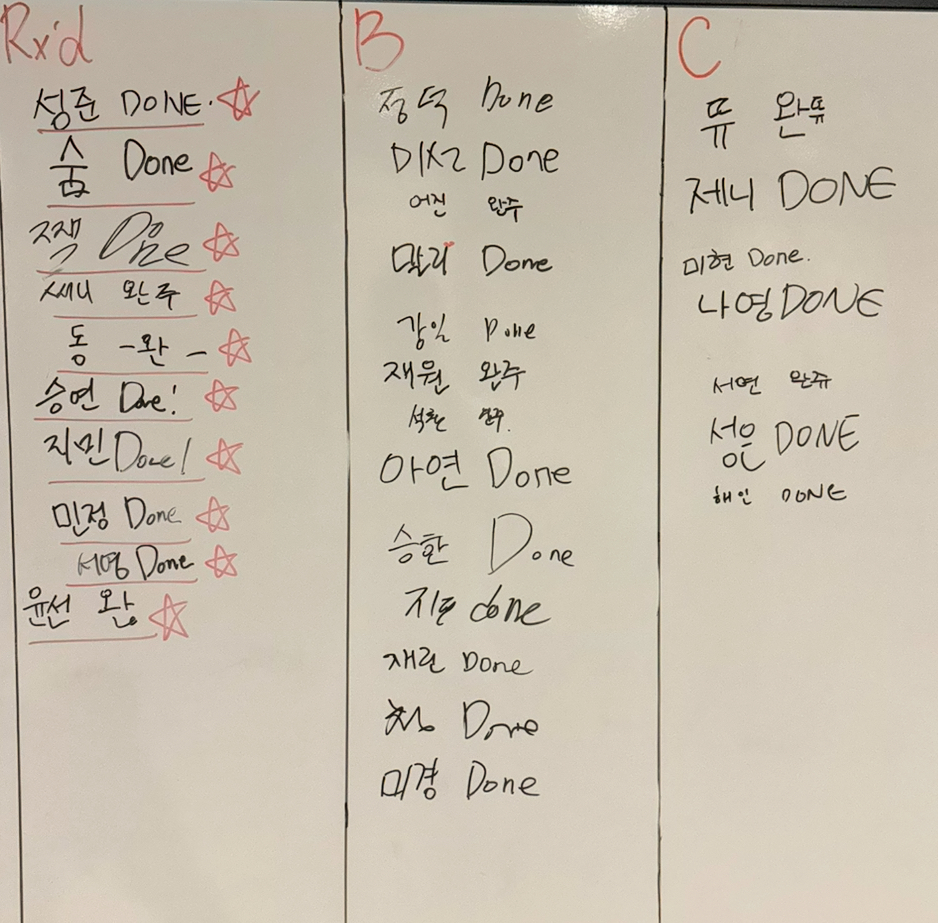 Rx'd
성준 DONE.
숨 Done
쪽 Done
쎄니 완주
동 -완-
승연 Done!
지민 Done!
민정 Done
서영 Done
윤선 완
B
정덕 Done
Done
어진 완주
말리 Done
강일 Done
재원 완주
석환
아연 Done
승환 Done
지또 done
재린 Done
Done
미경 Done
C
뜌 완뜌
제니 DONE
미현 Done.
나영 DONE
서연 완쥬
성은 DONE
해인 DONE